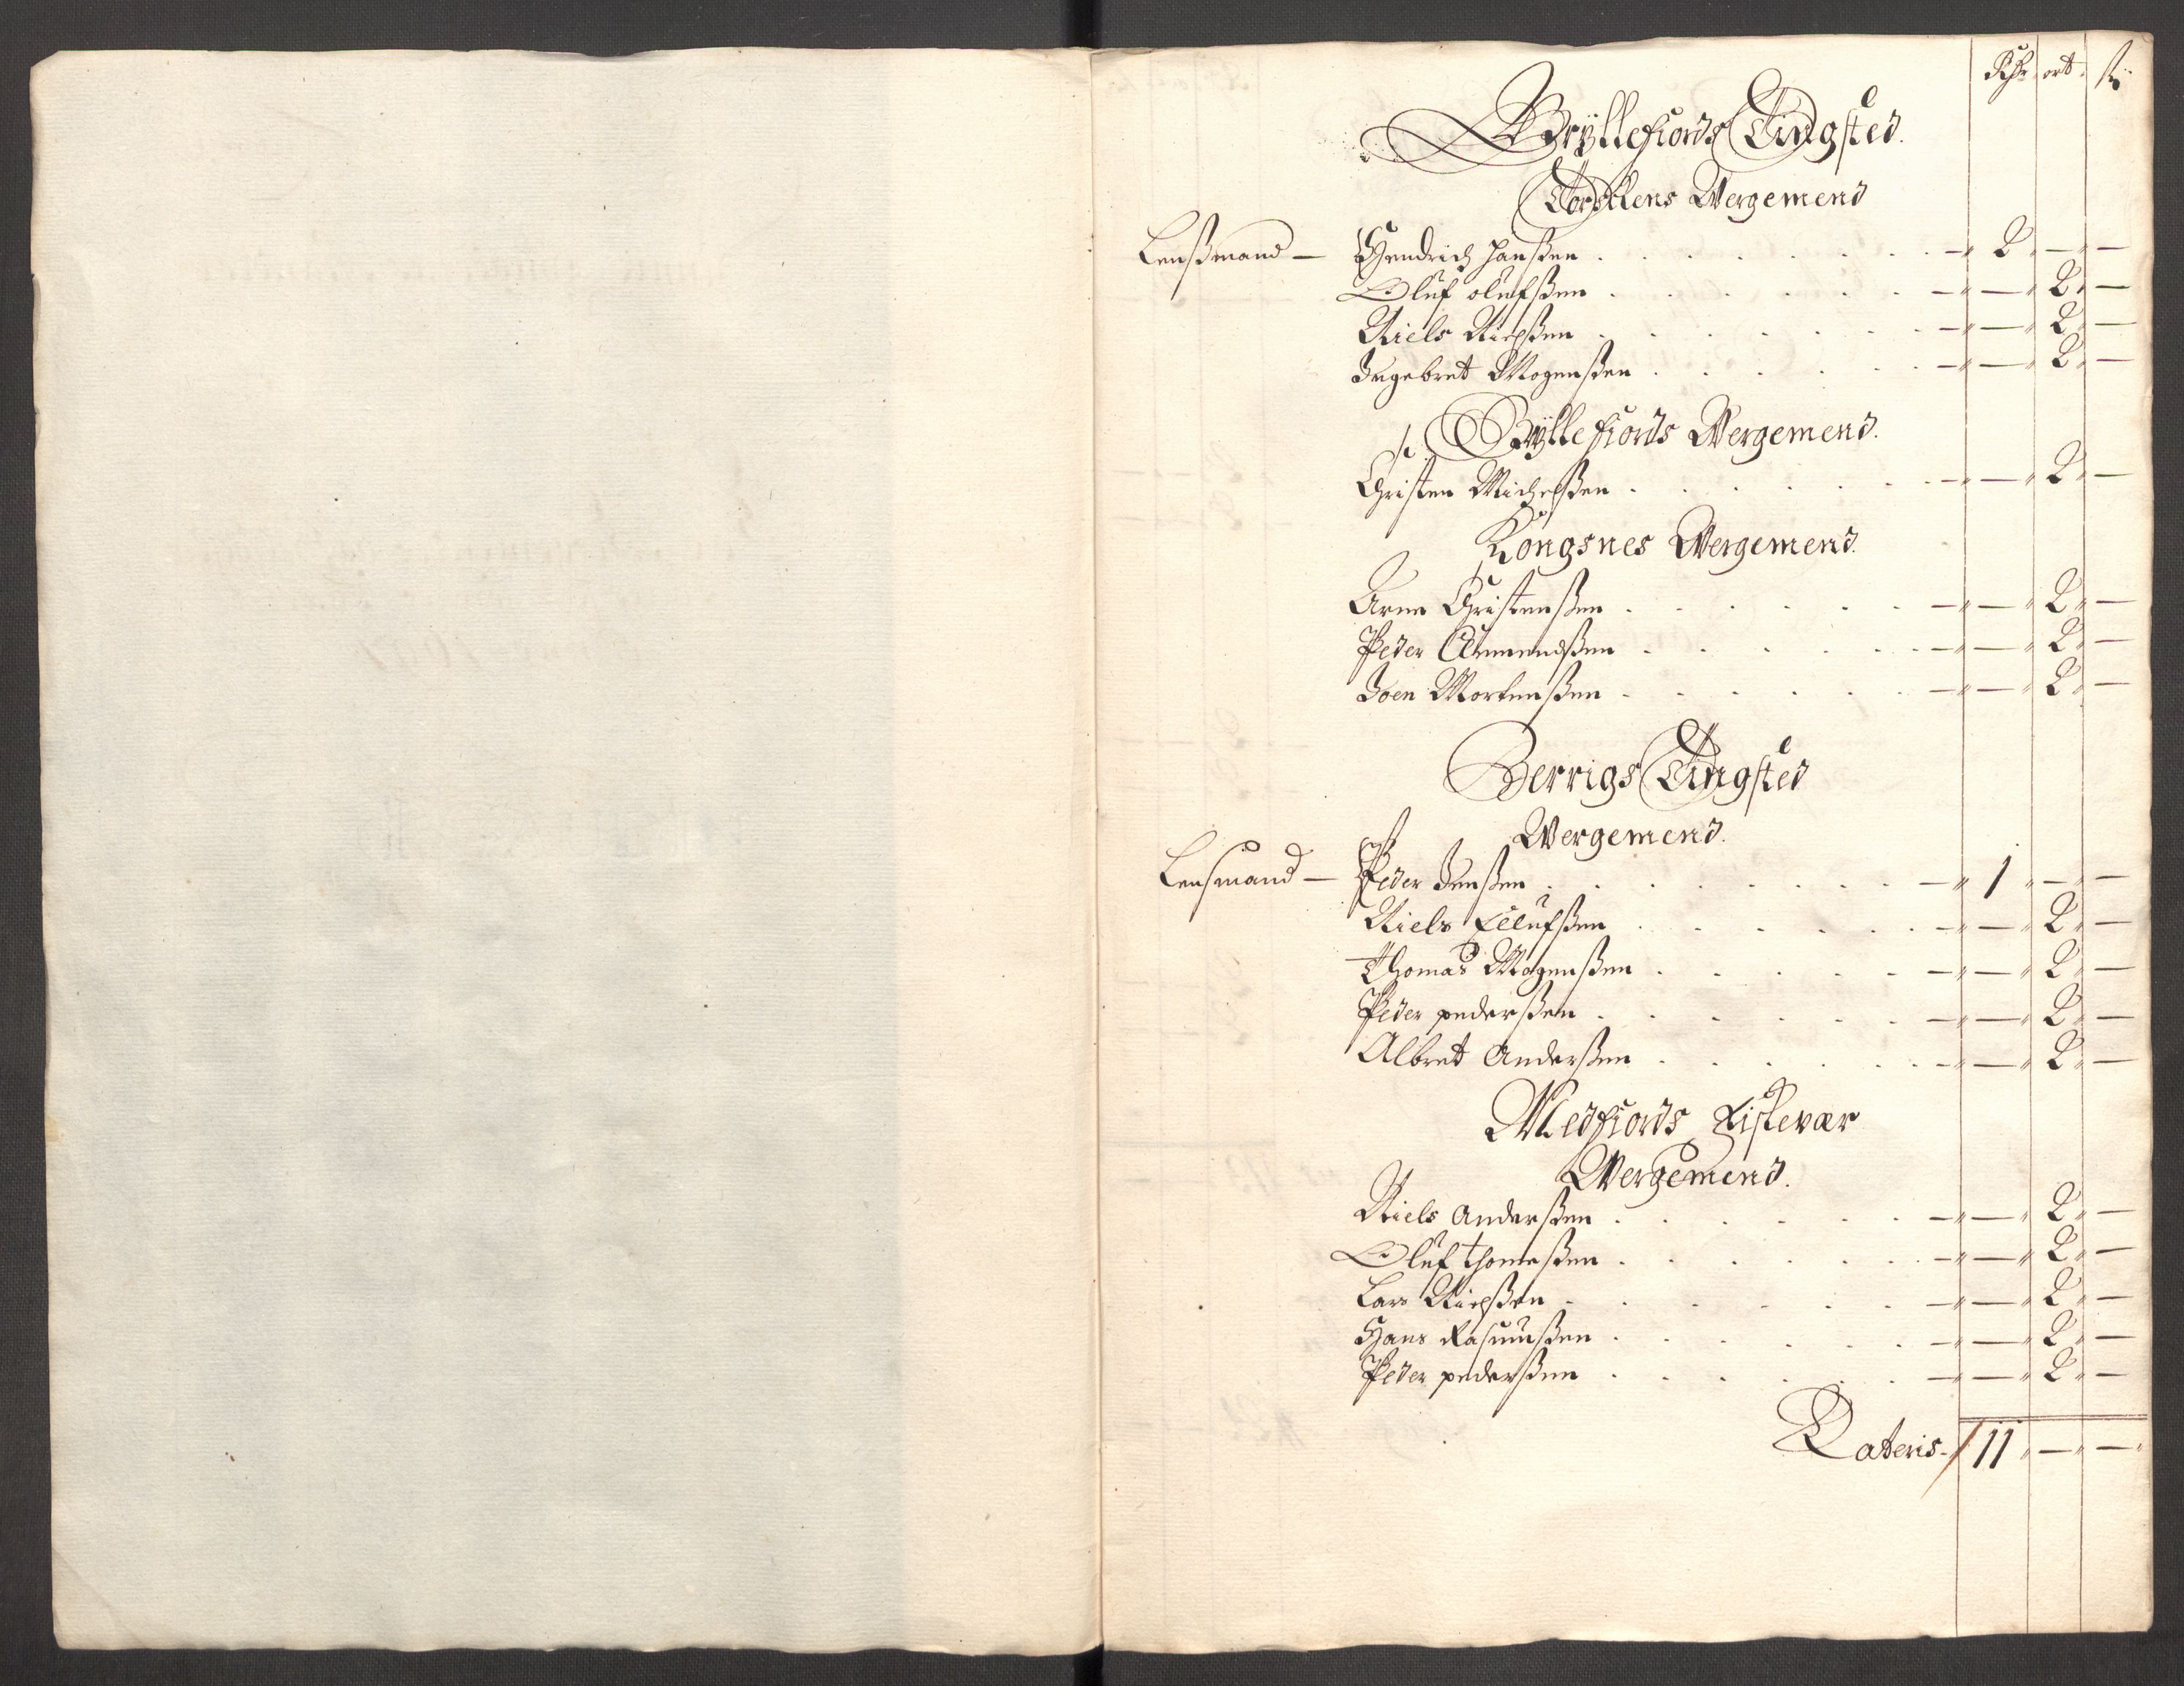 Rdr ort ß
Gryllefiords Tingsted.
Torskens Wergemend
Lenßmand — Hendrich Hanßen . . . . . . — 2 — —
Oluf olufsßen . . . . . . — — 2 —
Niels Nielßen . . . . . . — — 2 —
Ingebret Mogenßen . . . . . — — 2 —
Gryllefiords Wergemend.
Christen Michelßen . . . . . . — — 2 —
Kongsnes Wergemend.
Arne Christenßen . . . . . . — — 2 —
Peder Amundßen . . . . . . — — 2 —
Joen Mortenßen . . . . . . — — 2 —
Berrigs Tingsted
Wergemend.
Lensmand — Peder Jenßen . . . . . . — 1 — —
Niels Ellufsßen . . . . . . — — 2 —
Thomas Mogenßen . . . . . — — 2 —
Peder pederßen . . . . . . — — 2 —
Albret Anderßen . . . . . — — 2 —
Medfiords Fiskevær
Wergemend.
Niels Anderßen . . . . . . — — 2 —
Oluf thomeßen . . . . . . — — 2 —
Lars Nielßen . . . . . . — — 2 —
Hans Rasmusßen . . . . . . — — 2 —
Peder pederßen . . . . . . — — 2 —
Lateris — 11 — —